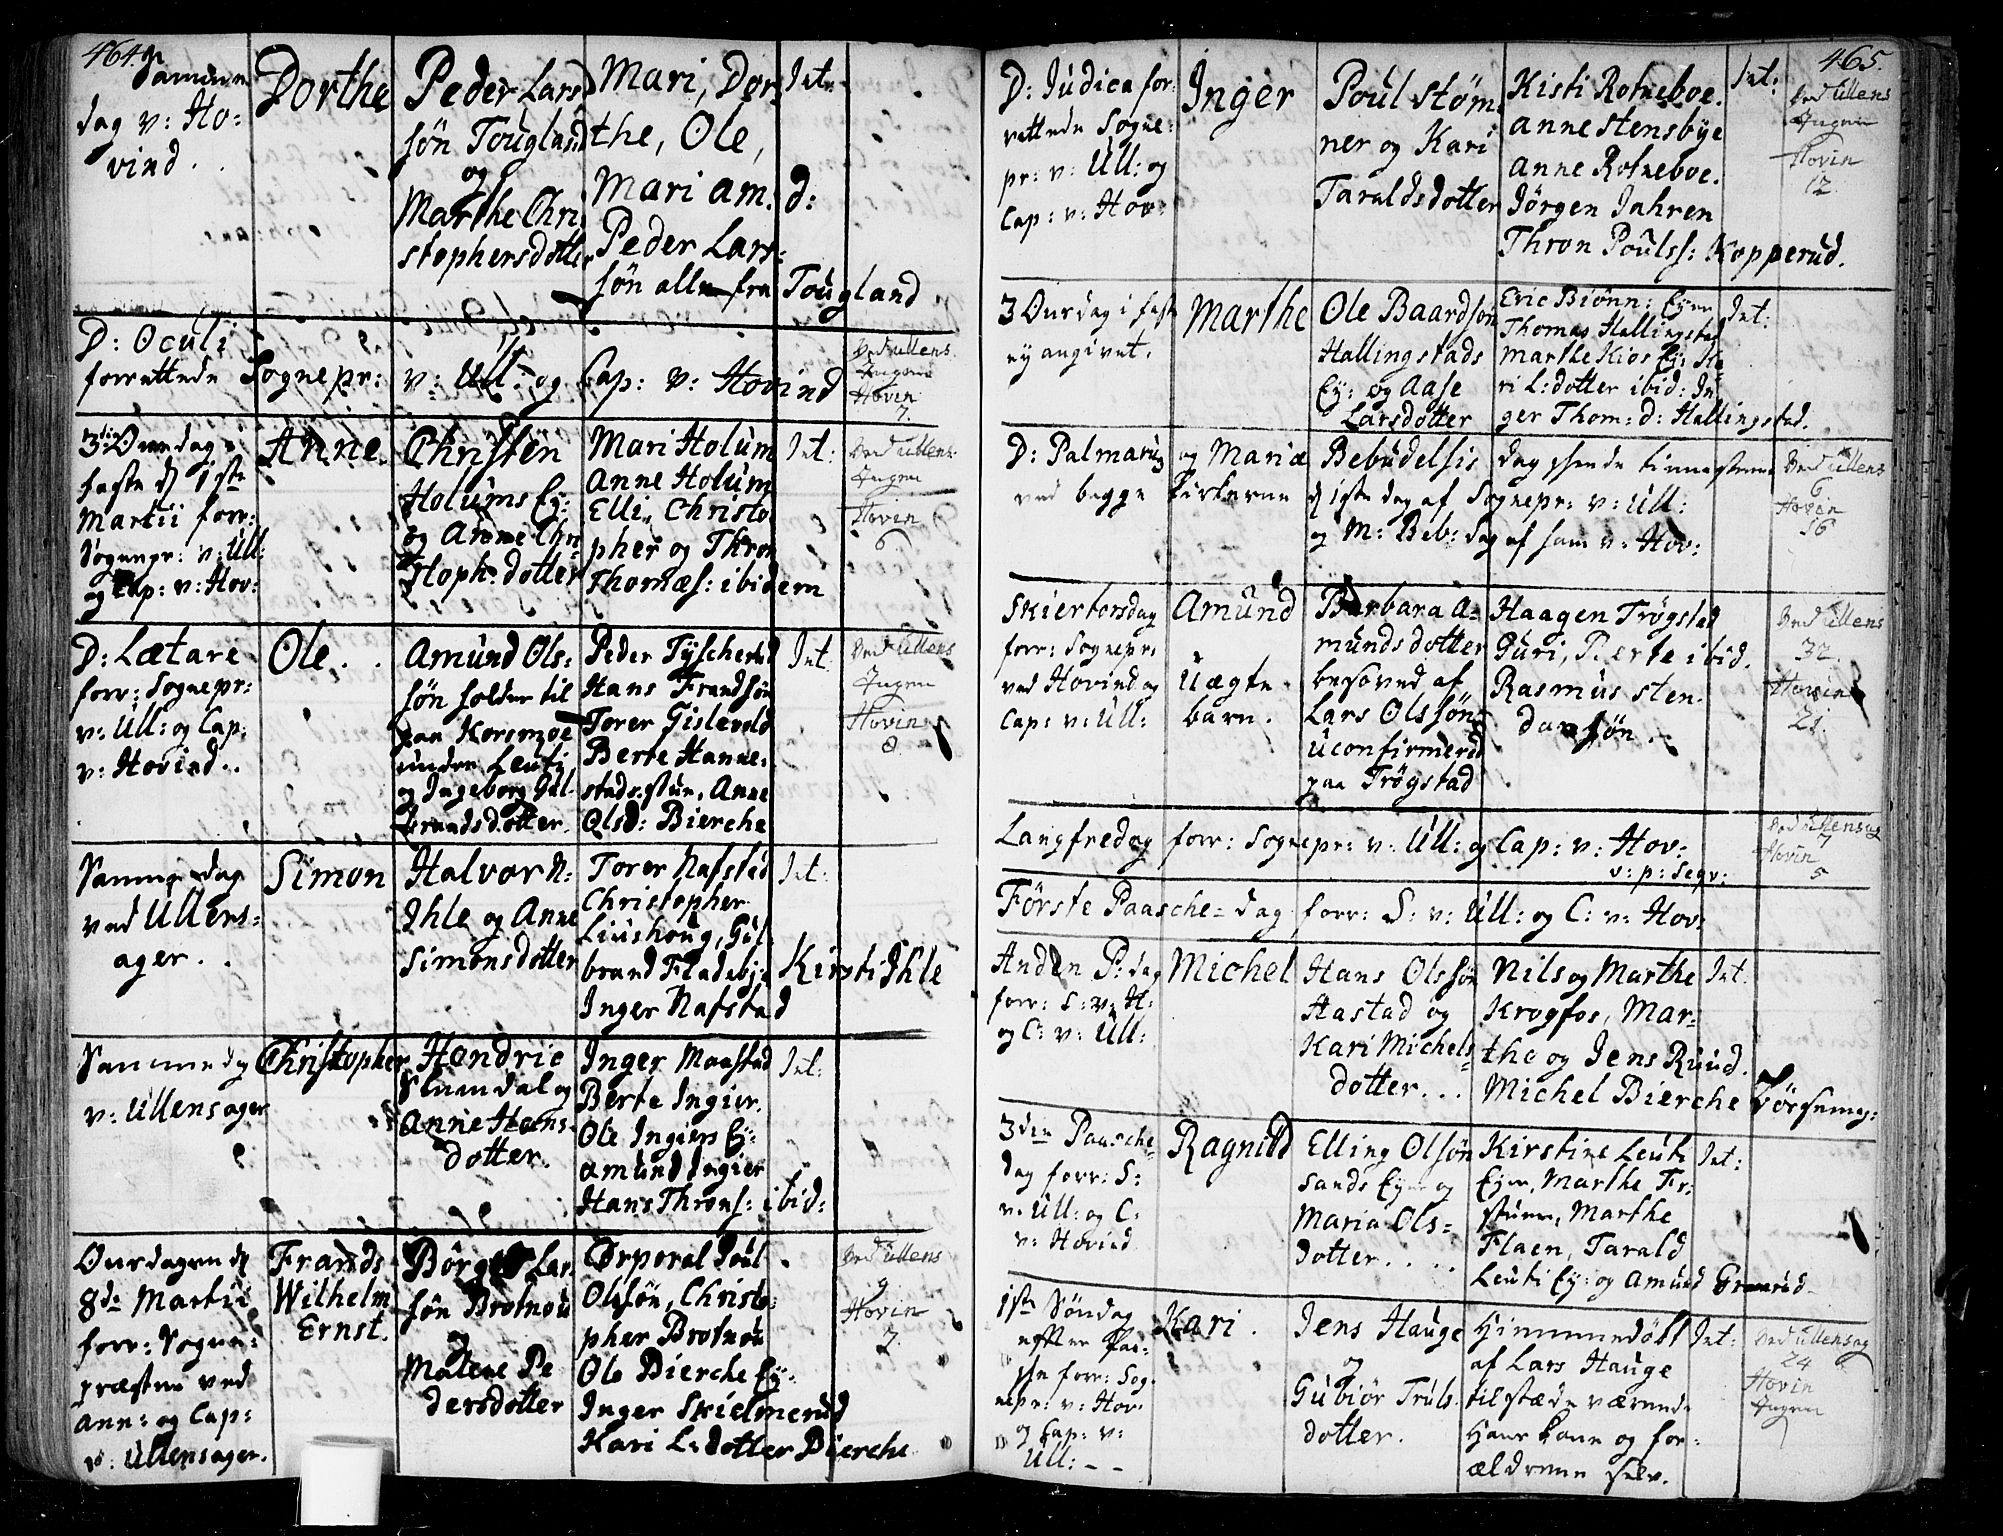 464.
Samme
dag v: Ho-
vind.
Dorthe
Peder Lars
søn Tougland
og
Marthe Chri
stophersdotter
Mari, Dor
the, Ole,
Mari Am. d:
Peder Lars-
søn alle fra Tougland
Int:
D: Oculi
forrettede Sognepr: v: Ull: og Cap: v: Hovind
Ved Ullens
Ingen
Hovin
7.
3die Onsdag i
faste d 1ste
Martii forr:
Sognepr: v: Ull:
og Cap: v: Hov:
Anne
Christen
Holums Ey:
og Anne Chri
stoph: dotter
Mari Holum
Anne Holum
Elli, Christo
pher og Thron
Thomæs: ibidem
Int:
Ved Ullens
Ingen
Hovin
6
D: Lætare
forr: Sognepr:
v: Ull: og Cap:
v: Hovind.
Ole
Amund Ols:
søn Soldat til
paa Korsmoe
under Leuti
og Ingeborg Gul-
brandsdotter.
Peder
Hans Frandsøn
Torer Gislevold
Berte Hanne-
stads stue, Anne
Olsd: Bierche
Int
Ved Ullens
Ingen
Hovin
8
Samme dag
ved Ullens-
ager.
Simon
Halvor N:
Ihle og Anne
Simonsdotter
Torer Nafstad
Christopher
Liushoug, Gul
brand Fladebye
Inger Nafstad
Int:
Kirsti Ihle
Samme dag
v: Ullensager
Christopher
Hendric
Slumdal og
Anne Hans
dotter.
Inger Maastad
Berte Ingier.
Ole Ingiers Ey:
Amund Ingier
Hans Throns: ibid:
Int:
Onsdagen d
8de Martii
forr: Sogne-
præsten ved
ann: og Cap:
v: Ullensager.
Frands
Wilhelm
Ernst.
Børge Lar
søn Brotnou
og
Malene Pe
dersdotter
Corporal Poul
Olssøn, Christo-
pher Brotnou
Ole Bierche Ey:
Inger Skielmerud
Kari L: dotter Bierche
Ved Ullens
9
Hovin
2.
465.
D: Judica for-
rettede Sogne-
pr: v: Ull: og
Cap: v: Hov:
Inger
Poul Støm
ner og Kari
Taraldsdotter
Kisti Rotneboe.
Anne Stensbye
Anne Rotneboe.
Jørgen Jahren
Thron Poulss: Kopperud.
Int:
Ved Ullens
Ingen
Hovin
12
3 Onsdag i fast
ey angivet.
Marthe
Ole Baardsøn
Hallingstads
Ey: og Aase
Larsdotter
Eric Biønn: Eyer
Thomas Hallingstad
Marthe Kios Ey: Ka
ri L: dotter ibid: In
ger Thom: d: Hallingstad.
Int:
D: Palmarum og Mariæ Bebudelsis dag
ved begge Kirkerne d 1ste dag af Sognepr: v: Ull:
og M: Beb: dag af sam v: Hov:
Ved Ullens
6
Hovin
16
Skiertorsdag
forr: Sognepr:
ved Hovind og
Cap: v: Ull:
Amund
Uægte
barn.
Barbara A-
mundsdotter
besoved af
Lars Olssøn
Uconfirmered
paa Trøgstad
Haagen Trøgstad
Guri, Berte ibid.
Rasmus Sten-
dersøn
Ved Ullens
32.
Hovin
21.
Langfredag forr: Sognepr: v: Ull: og Cap: v: Hov:
v: p: Seqv:
Ved Ullensag
7
Hovin
5
Første Paasche-dag forr: S: v: Ull: og C: v: Hov:
Anden P: dag
forr: S: v: H:
og C: v: Ull:
Michel
Hans Olssøn
Hastad og
Kari Michels
dotter...
Nils og Marthe
Krogfos, Mar-
the og Jens Ruud.
Michel Bierche
Int.
3die Paasche
dag forr: S:
v: Ull: og C:
v: Hovind
Ragnild
Elling Olsøn
Sands Eyer og
Maria Ols-
dotter....
Kirstine Leuti
Eyer, Marthe Fr:
stuen, Marthe
Flaen, Tarald
Leuti Ey: og Amund Grønerud
Int:
1ste Søndag
efter Paa-
sche forr: Sog-
nepr: v: Hov:
og Cap: v:
Ull: - -
Kari.
Jens Hauge
og
Gubiør Truls
dotter.
Himmedøbt
af Lars Hauge
tilstæde værende
Hans Kone og for-
ældrene selv.
Int:
Ved Ullensag
24
Hovin
Ingen